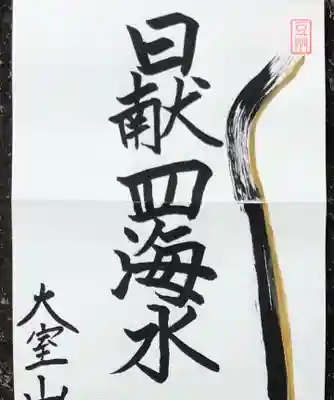 日献四海水
大室山